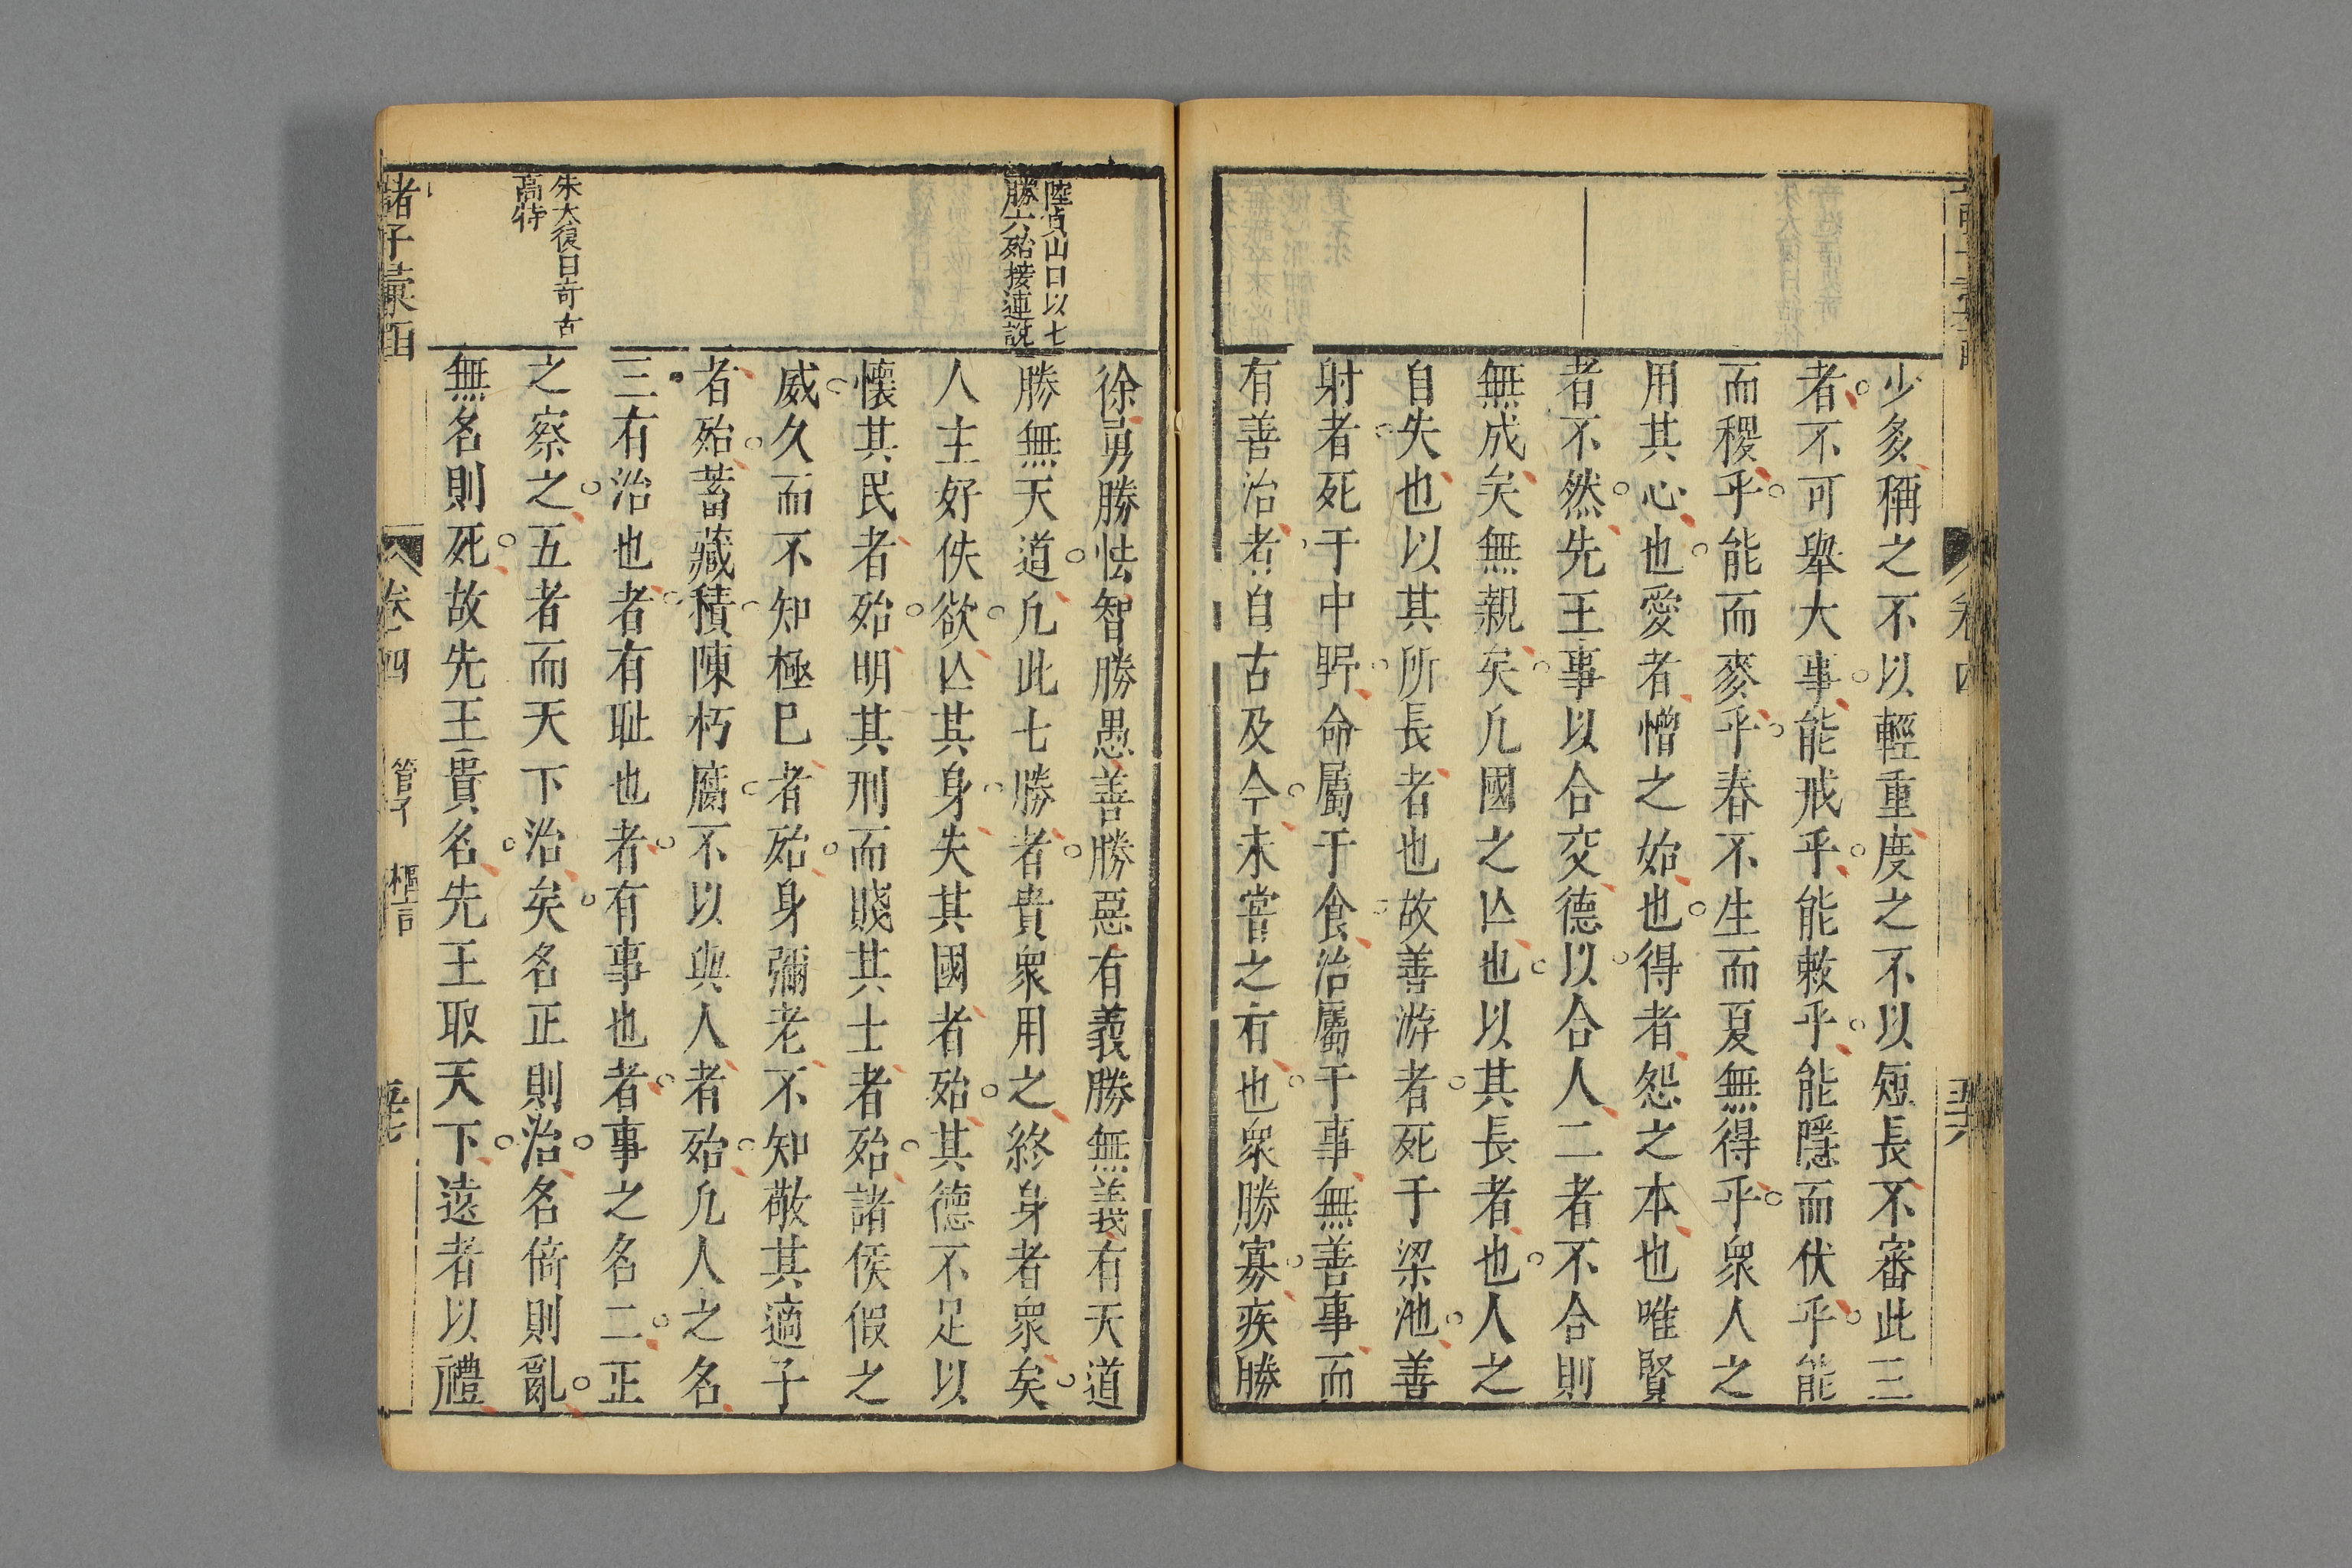 少多稱之不以輕重度之不以短長不審此三
者不可舉大事能戒乎能敕乎能隱而伏乎能
而稷乎能而麥乎春不生而夏無得乎衆人之
用其心也愛者憎之始也得者怨之本也唯賢
者不然先王事以合交德以合人二者不合則
無成矣無親矣凢國之亾也以其長者也人之
自失也以其所長者也故善游者死于梁池善
射者死于中野命屬于食治屬于事無善事而
有善治者自古及今未嘗之有也衆勝寡疾勝
卷四
徐勇勝怯智勝愚善勝惡有義勝無義有天道
勝無天道凢此七勝者貴衆用之終身者衆矣
人主好佚欲亾其身失其國者殆其德不足以
懷其民者殆明其刑而賤其士者殆諸侯假之
威久而不知極已者殆身彌老不知敬其適子
者殆蓄藏積陳朽腐不以與人者殆凢人之名
三有治也者有耻也者有事也者事之名二正
之察之五者而天下治矣名正則治名倚則亂
無名則死故先王貴名先王取天下遠者以禮
陸貞山曰以七
勝六殆接連説
朱大復曰奇古
高特
諸子彙函
卷四
管子
樞言